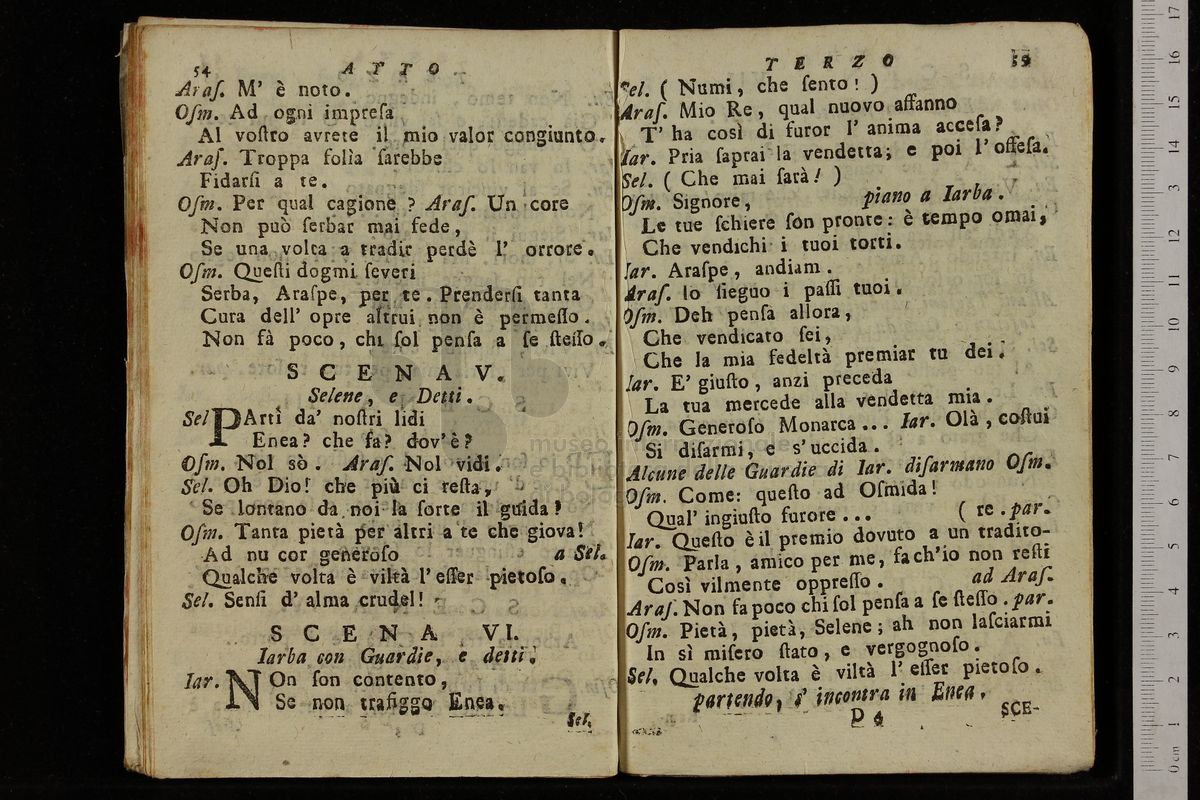 54 ATTO
Araſ. M' è noto.
Oſm. Ad ogni impreſa
Al voſtro avrete il mio valor congiunto.
Araſ. Troppa folìa ſarebbe
Fidarſi a te.
Oſm. Per qual cagione ? Araſ. Un core
Non può ſerbar mai fede,
Se una volta a tradir perdè l' orrore.
Oſm. Queſti dogmi ſeveri
Serba, Araſpe, per te. Prenderſi tanta
Cura dell' opre altrui non è permeſſo.
Non fà poco, chi ſol penſa a ſe ſteſſo.
SCENA V.
Selene, e Detti.
Sel PArti da' noſtri lidi
Enea? che fa? dov'è?
Oſm. Nol sò. Araſ. Nol vidi.
Sel. Oh Dio! che più ci reſta,
Se lontano da noi la ſorte il guida?
Oſm. Tanta pietà per altri a te che giova!
Ad nu cor generoſo a Sel.
Qualche volta è viltà l'eſſer pietoſo.
Sel. Senſi d' alma crudel!
SCENA VI.
Iarba con Guardie, e detti.
Iar. NOn ſon contento,
Se non trafiggo Enea.
Sel.
TERZO 55
Sel. ( Numi, che ſento! )
Araſ. Mio Re, qual nuovo affanno
T' ha così di furor l' anima acceſa?
Iar. Pria ſaprai la vendetta; e poi l'offeſa.
Sel. ( Che mai ſarà! )
Oſm. Signore, piano a Iarba.
Le tue ſchiere ſon pronte: è tempo omai,
Che vendichi i tuoi torti.
Iar. Araſpe, andiam.
Araſ. Io ſieguo i paſſi tuoi.
Oſm. Deh penſa allora,
Che vendicato ſei,
Che la mia fedeltà premiar tu dei.
Iar. E' giuſto, anzi preceda
La tua mercede alla vendetta mia.
Oſm. Generoſo Monarca... Iar. Olà, coſtui
Si diſarmi, e s'uccida.
Alcune delle Guardie di Iar. diſarmano Oſm.
Oſm. Come: queſto ad Oſmida!
Qual' ingiuſto furore... ( re. par.
Iar. Queſto è il premio dovuto a un tradito-
Oſm. Parla, amico per me, fa ch'io non reſti
Così vilmente oppreſſo. ad Araſ.
Araſ. Non fa poco chi ſol penſa a ſe ſteſſo. par.
Oſm. Pietà, pietà, Selene; ah non laſciarmi
In sì miſero ſtato, e vergognoſo.
Sel. Qualche volta è viltà l' eſſer pietoſo.
partendo, s' incontra in Enea.
D 4 SCE-